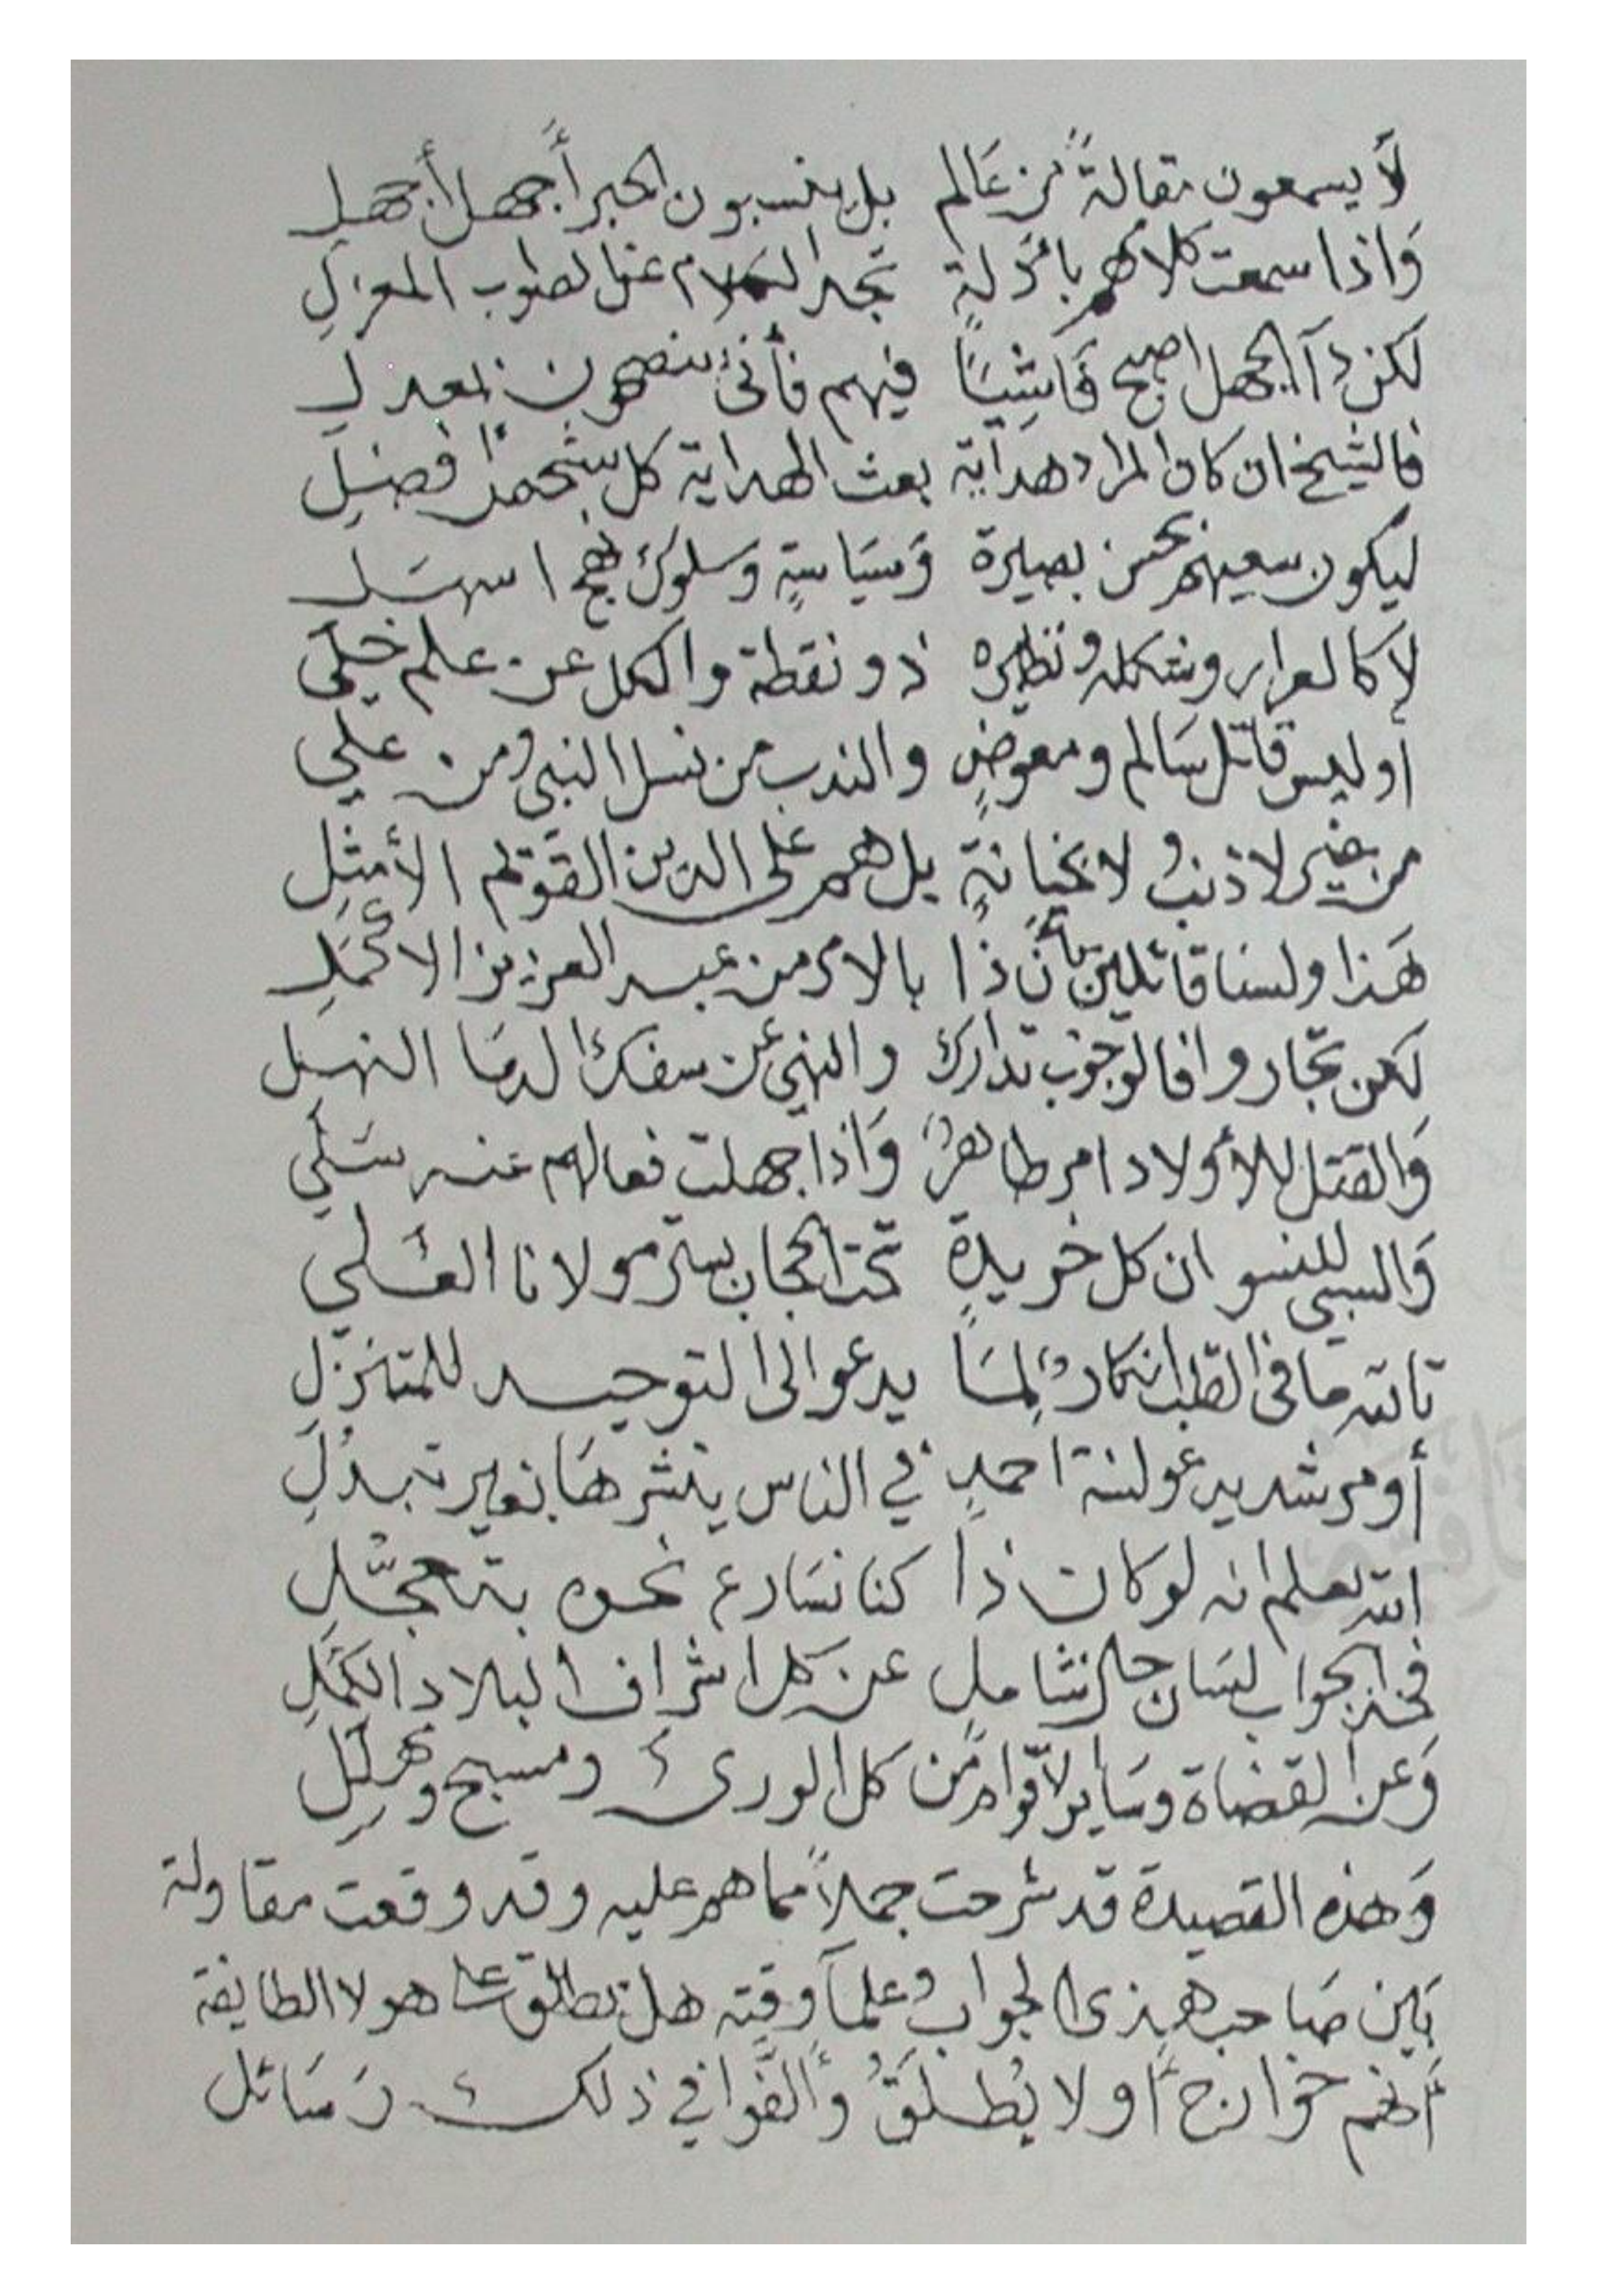 لَا يسمعون مقالةً من عَالم بل ينسبون الحبر أَجهل أجهل
وَاذا سمعت كلامهم بادَلةٍ تجد الكلام عن الصواب بمعزلِ
لكن ذآ الجهل اصبح فَاشِيًا فيهم فأنى ينصحون بمعدل
فالشيخ ان كان المراد هدَاية بعث الهداية كل شخص افضلِ
ليكون سعيهم بحسن بصيرة وَسيَاسةٍ وسلوك نهج اسهَل
لا كالعرار وشكله ونظيره ذو نقطة والكل عن علم خلِي
أو ليس قاتل سَالم ومعوضٍ والندب من نسل النبي ومن علي
من غير لا ذنبٍ ولا بخيانةٍ بل هم على الدين القويم الأمثلِ
هَذا ولسنا قائلين بأَن ذا بالامر من عبد العزيز الاكمَلِ
لكن تجاروا فالوجوب تدارك والنهي عن سفك الدمَا النهل
وَالقتل للأولاد امر ظاهرٌ وَاذا جهلت فعالهم عنه سَلِي
وَالسبي للنسوان كل خريدةٍ تحت الحجاب بستر مولانا العَلِي
تالله ما في القلب انكارٌ لِمَا يدعو الى التوحيد للمتنزّلِ
أو مرشد يدعو لسنة احمدٍ في الناس ينشرهَا بغير تبدلِ
الله يعلم انه لو كان ذا كنا نسَارع نحوه بتعجّلِ
فخذ الجواب لسَان حال شامل عن كل اشراف البلاد الكمَّلِ
وَعن القضاة وسَاير الأقوام من كل الورى ومسبح ومهلّلِ
وَهذه القصيدة قد شرحت جملاً مما هم عليه وقد وقعت مقاولة
بَين صَاحب هذى الجواب وعلمآ وقته هل يطلق على هولا الطايفة
أنهم خوَارج أو لا يُطلَقُ وأَلّفوا في ذلك رسَائل